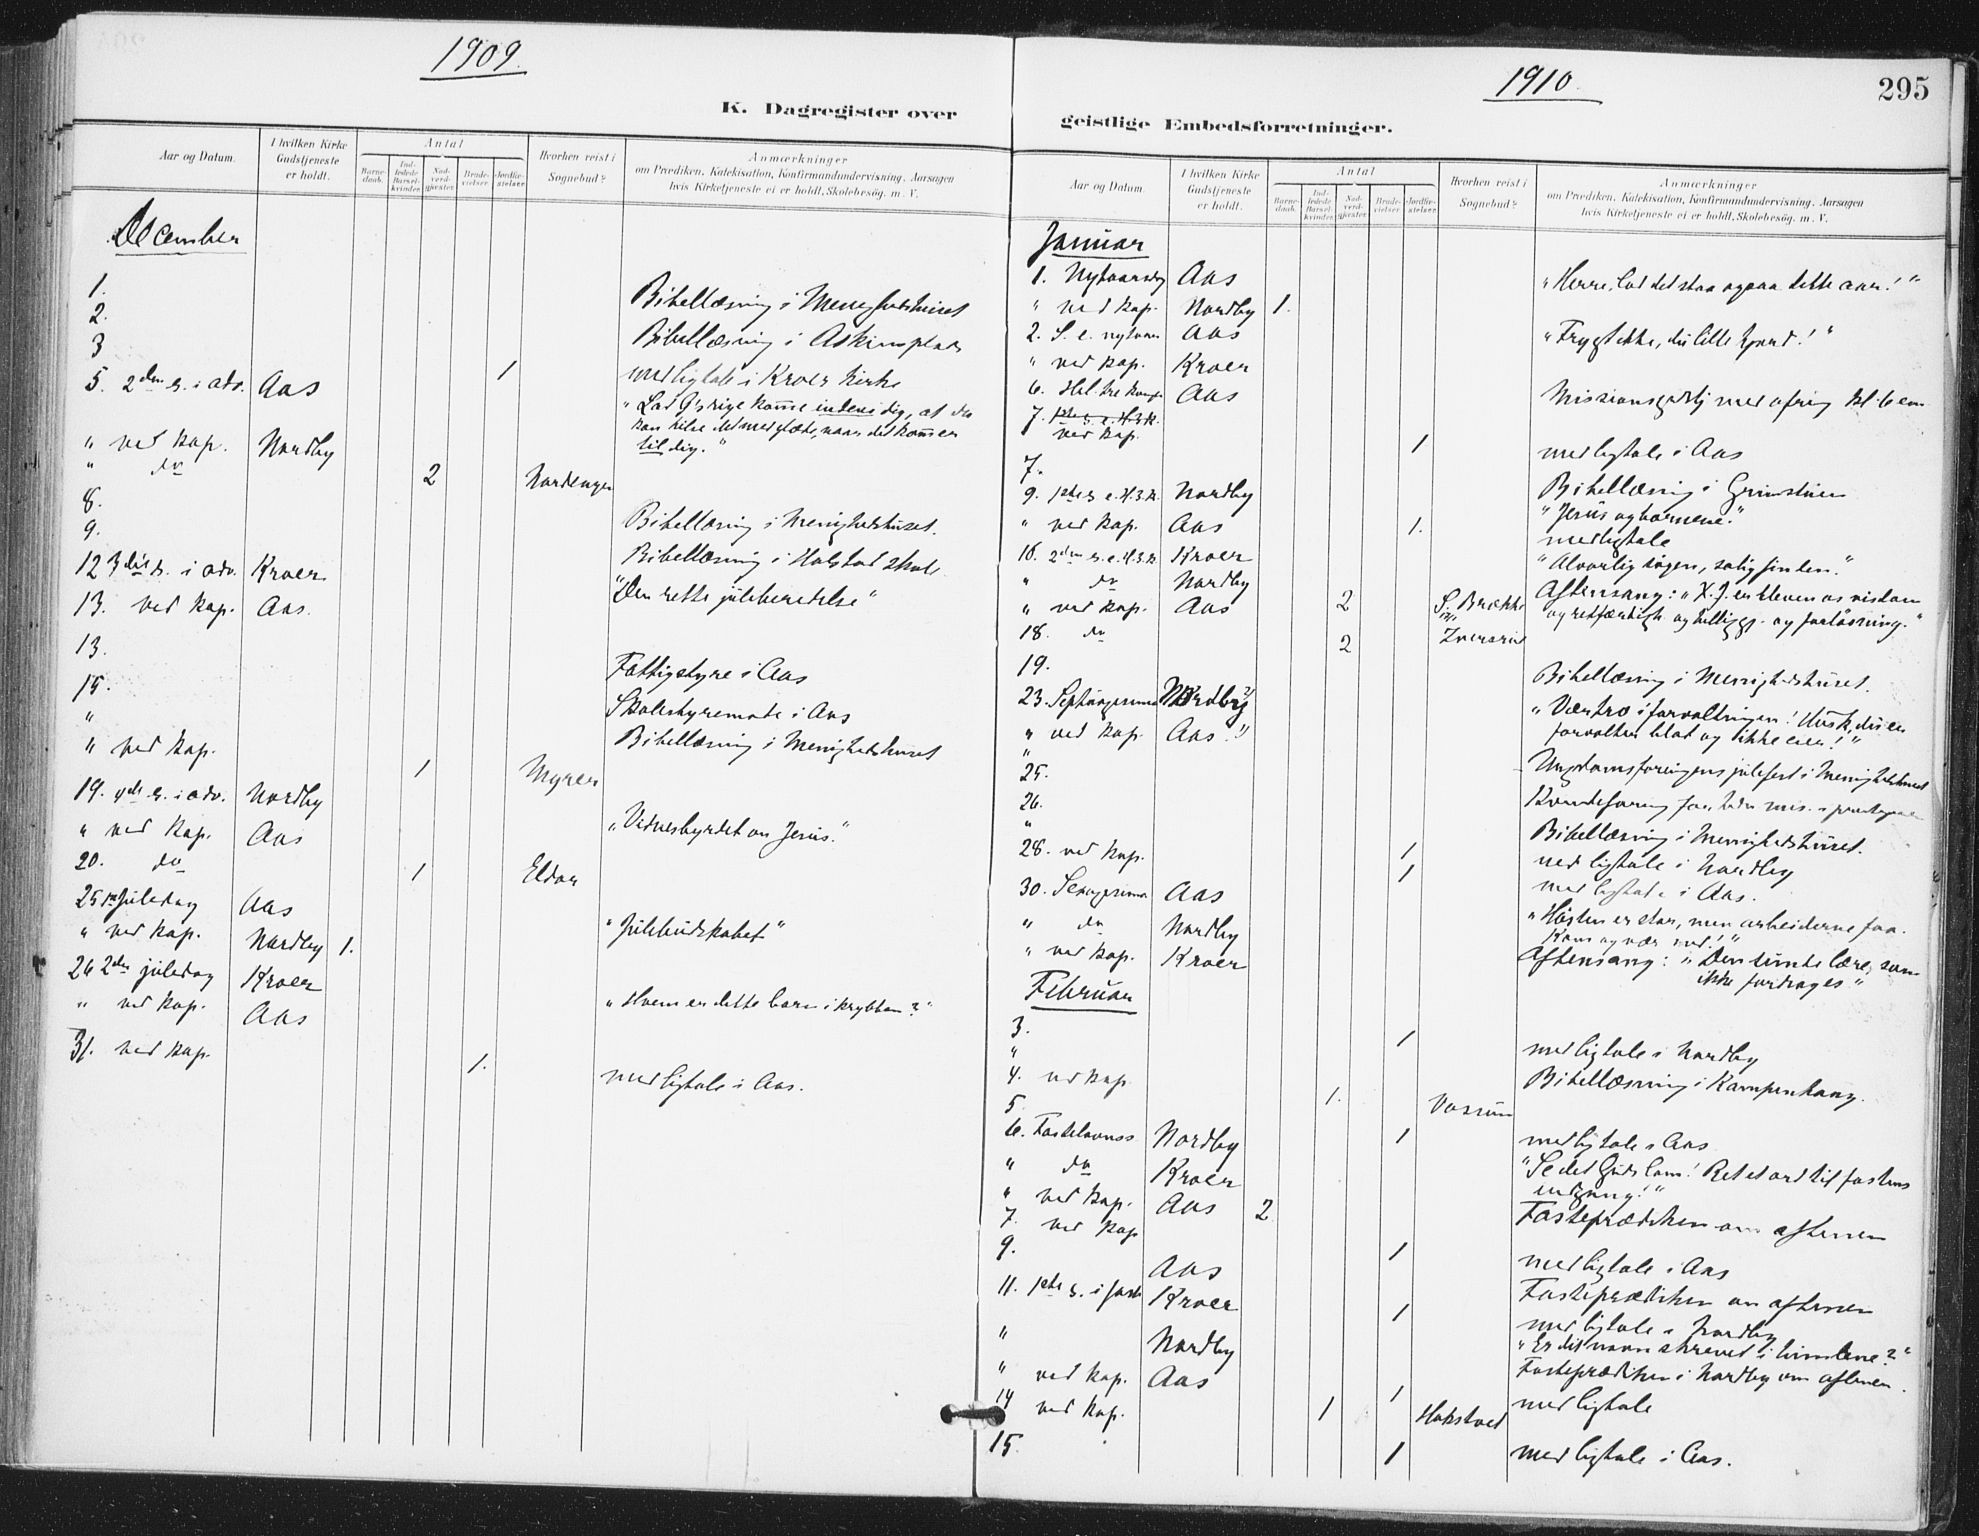 1909.
K. Dagregister over
Aar og Datum.
I hvilken Kirke Gudstjeneste er holdt.
Antal
Barnedaab.
Indledede Barselkvinder.
Nadverdgjester.
Brudevielser.
Jordfæstelser.
Hvorhen reist i Sognebud?
Anmærkninger
om Prædiken, Katekisation, Konfirmandundervisning, Aarsagen
hvis Kirketjeneste ei er holdt, Skolebesøg. m. V.
December
1. Bibellæsning i Menighedshuset
2. Bibellæsning i Askimsplads
3 1 med ligtale i Kroer kirke
5. 2den s. i adv. Aas "Lad G's rige komme indeni dig, at du
kan hilse det med glæde, naar det kommer
til dig."
" ved kap. Nordby
" do 2 Nordengen
8. Bibellæsning i Menighedshuset.
9. Bibellæsning i Holstad skole
12 3die s. i adv. Kroer "Den rette juleberedelse"
13. ved kap. Aas.
13. Fattigstyre i Aas
15. Skolestyremøte i Aas
" Bibellæsning i Menighedshuset
" ved kap. 1 Myrer
19. 4de s. i adv. Nordby "Vidnesbyrdet om Jesus."
" ved kap. Aas
20. do 1 Eldor
25 1ste juledag Aas "Julebudskabet"
" ved kap. Nordby 1.
26 2den juledag Kroer "Hvem er dette barn i krybben?"
" ved kap. Aas
31. ved kap. 1. med ligtale i Aas.
1910.
295
geistlige Embedsforretninger.
Aar og Datum.
I hvilken Kirke Gudstjeneste er holdt.
Antal
Barnedaab.
Indledede Barselkvinder.
Nadverdgjester.
Brudevielser.
Jordfæstelser.
Hvorhen reist i Sognebud?
Anmærkninger
om Prædiken, Katekisation, Konfirmandundervisning, Aarsagen
hvis Kirketjeneste ei er holdt, Skolebesøg. m. V.
Januar
1. Nytaarsdag Aas "Herre, lad det staa ogsaa dette aar!"
" ved kap. Nordby 1.
2. S. e. nytaar Aas "Frygt ikke, du lille hjord!"
" ved kap. Kroer
6. Hel. tre kong. Aas Missionsgudstj med ofring kl. 6 em
7. 1ste s. e. H.3.K.
ved kap. 1 med ligtale i Aas
7. Bibellæsning i Grimstuen
9. 1ste s. e. H.3.K. Nordby "Jesus og børnene."
" ved kap. Aas 1. med ligtale
16. 2den s. e. H.3.K Kroer "Alvorlig søgen, salig finden."
" do Nordby Aftensang: "K. J. er bleven os visdom
og retfærdigh. og helliggj. og forløsning."
" ved kap. Aas 2 S. Brække
18. do 2
19. Bibellæsning i Menighedshuset.
23. Septuagesima Nordby "Vær tro i forvaltningen! Husk, du er
forvalter blot og ikke eier!"
" ved kap. Aas
" Ungdomsforeningens julefest i Menighedshuset
25. Kvindeforening for
26. Bibellæsning i Menighedshuset.
" 1 med ligtale i Nordby
28. ved kap. 1 med ligtale i Aas.
30. Sexagesima Aas "Høsten er stor, men arbeiderne faa.
Kom og vær med!"
" do Nordby Aftensang: "Den sunde lære, som
ikke fordrages"
" ved kap. Kroer
Februar
3. 1 med ligtale i Nordby
" Bibellæsning i Kampenhaug.
4. ved kap. 1. Vassum
5. 1 med ligtale i Aas
6. Fastelavnss. Nordby "Se det Guds lam! Ret et ord til fastens
indgang!"
" do Kroer Fasteprædiken om aftenen
" ved kap. Aas 2
7. ved kap 1 med ligtale i Aas
9. Aas Fasteprædiken om aftenen
11. 1ste s. i faste Kroer 1 med ligtale i Nordby
"Er dit navn skrevet i himlene?"
" Nordby Fasteprædiken i Nordby om aftenen.
" ved kap. Aas 1 med ligtale
14 ved kap. 1 Hakstad
15. 1 med ligtale i Aas.